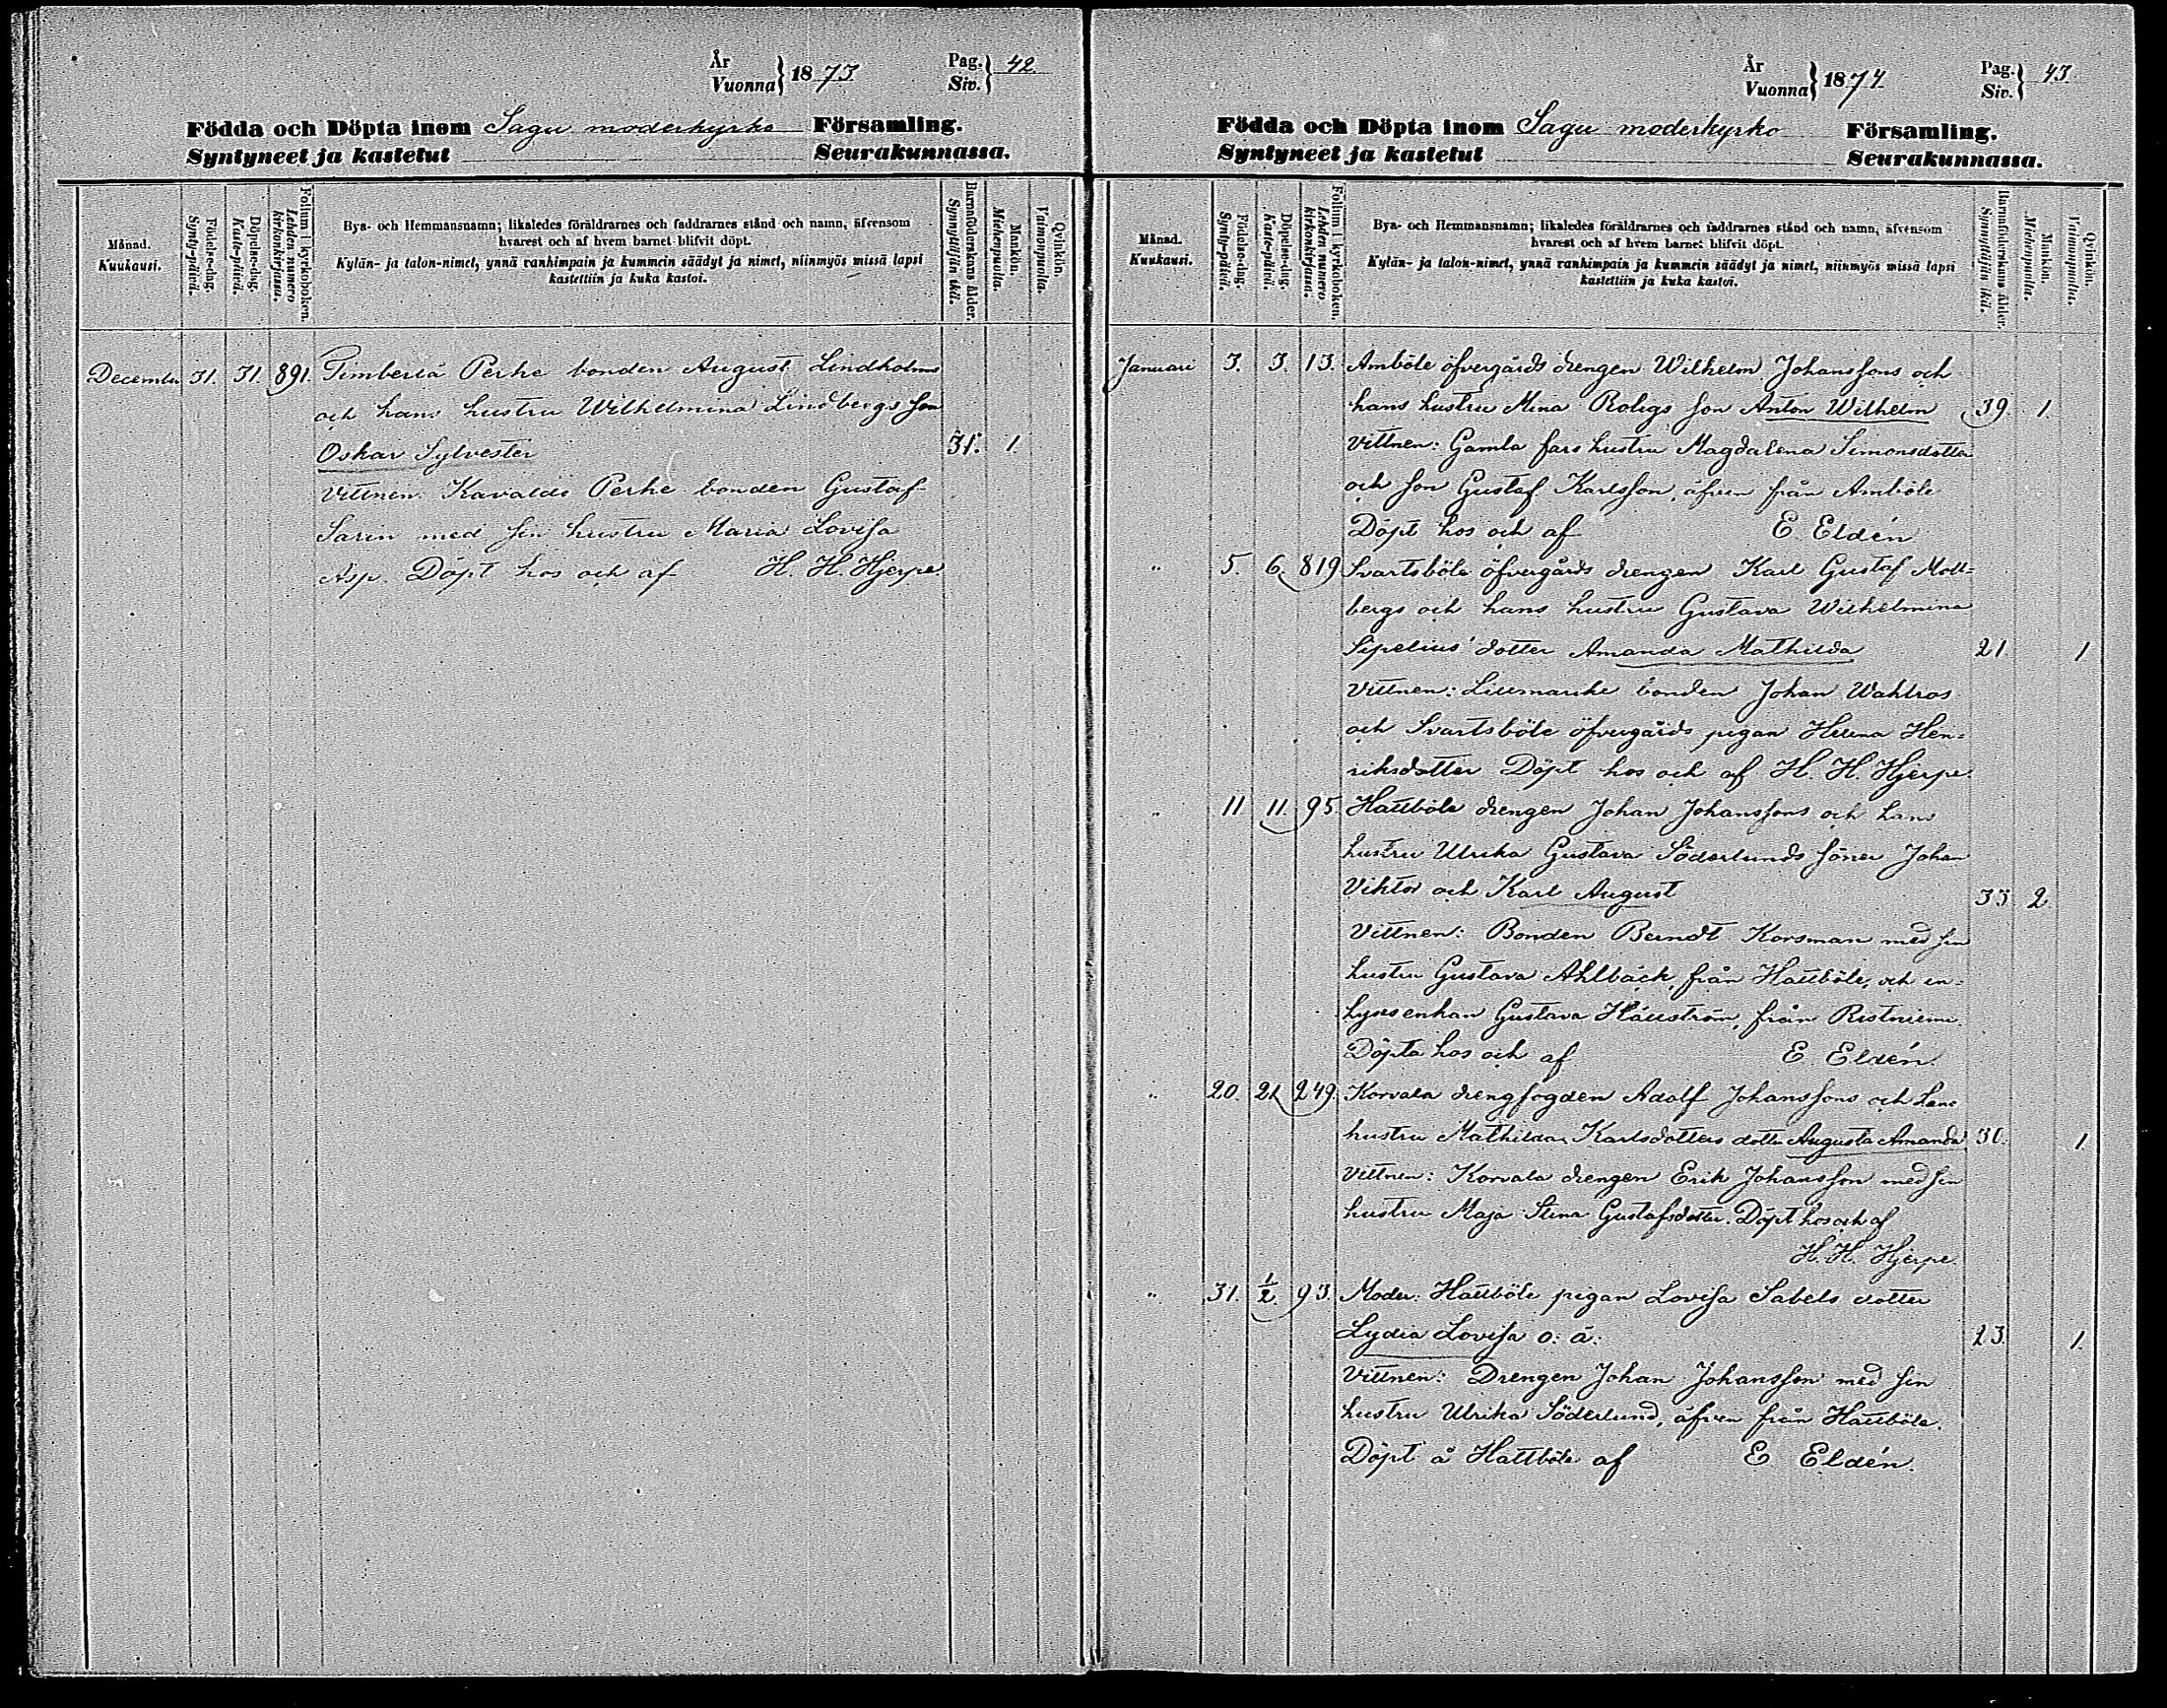 År
Vuonna } 1873.
Pag.
Siv. } 42.
Födda och Döpta inom Sagu moderkyrko Församling.
Syntyneet ja kastetut Seurakunnassa.
Månad.
Kuukausi.
Födelse-dag.
Synty-päivä.
Döpelse-dag.
Kaste-päivä.
Folium i kyrkoboken.
Lehden numero kirkonkirjassa.
Bya- och Hemmansnamn; likaledes föräldrarnes och faddrarnes stånd och namn, äfvensom
hvarest och af hvem barnet blifvit döpt.
Kylän- ja talon-nimet, ynnä vanhimpain ja kummein säädyt ja nimet, niinmyös missä lapsi
kastettiin ja kuka kastoi.
Barnaföderskans ålder.
Synnyttäjän ikä.
Mankön.
Miehenpuolia.
Qvinkön.
Vaimonpuolia.
December 31. 31. 891. Timberlä Perhe bonden August Lindholms
och hans hustru Wilhelmina Lindbergs son
Oskar Sylvester 31. 1
Vittnen. Kavaldo Perhe bonden Gustaf
Sarin med sin hustru Maria Lovisa
Asp. Döpt hos och af H. H. Hjerpe.
År
Vuonna } 1874.
Pag.
Siv. } 43.
Födda och Döpta inom Sagu moderkyrko Församling.
Syntyneet ja kastetut Seurakunnassa.
Månad.
Kuukausi.
Födelse-dag.
Synty-päivä.
Döpelse-dag.
Kaste-päivä.
Folium i kyrkoboken.
Lehden numero kirkonkirjassa.
Bya- och Hemmansnamn; likaledes föräldrarnes och faddrarnes stånd och namn, äfvensom
hvarest och af hvem barnet blifvit döpt.
Kylän- ja talon-nimet, ynnä vanhimpain ja kummein säädyt ja nimet, niinmyös missä lapsi
kastettiin ja kuka kastoi.
Barnaföderskans ålder.
Synnyttäjän ikä.
Mankön.
Miehenpuolia.
Qvinkön.
Vaimonpuolia.
Januari 3. 3. 13. Amböle öfvergårds drengen Wilhelm Johanssons och
hans hustru Mina Roligs son Anton Wilhelm 39 1.
Vittnen: Gamla fars hustru Magdalena Simonsdotter
och son Gustaf Karlsson, äfven från Amböle
Döpt hos och af E. Eldén
" 5. 6. 819 Svartsböle öfvergårds drengen Karl Gustaf Moll-
bergs och hans hustru Gustava Wilhelmina
Sipelius' dotter Amanda Mathilda 21 1
Vittnen: Lillmanke bonden Johan Wahlros
och Svartsböle öfvergårds pigan Helena Hen-
riksdotter Döpt hos och af H. H. Hjerpe.
" 11 11. 95. Hattböle drengen Johan Johanssons och hans
hustru Ulrika Gustava Söderlunds söner Johan
Viktor och Karl August 33 2
Vittnen: Bonden Berndt Korsman med sin
hustru Gustava Ahlbäck, från Hattböle, och en-
Gustava från Ristniemi.
Döpta hos och af E. Eldén.
" 20. 21. 249. Korvala drengfogden Adolf Johanssons och hans
hustru Mathilda Karlsdotters dotter Augusta Amanda 30. 1.
Vittnen: Korvala drengen Erik Johansson med sin
hustru Maja Stina Gustafsdotter. Döpt hos och af
H. H. Hjerpe.
" 31. 1/2. 93. Moder: Hattböle pigan Lovisa Sabels dotter
Lydia Lovisa o: ä: 23. 1.
Vittnen: Drengen Johan Johansson med sin
hustru Ulrika Söderlund, äfven från Hattböle.
Döpt å Hattböle af E Eldén.